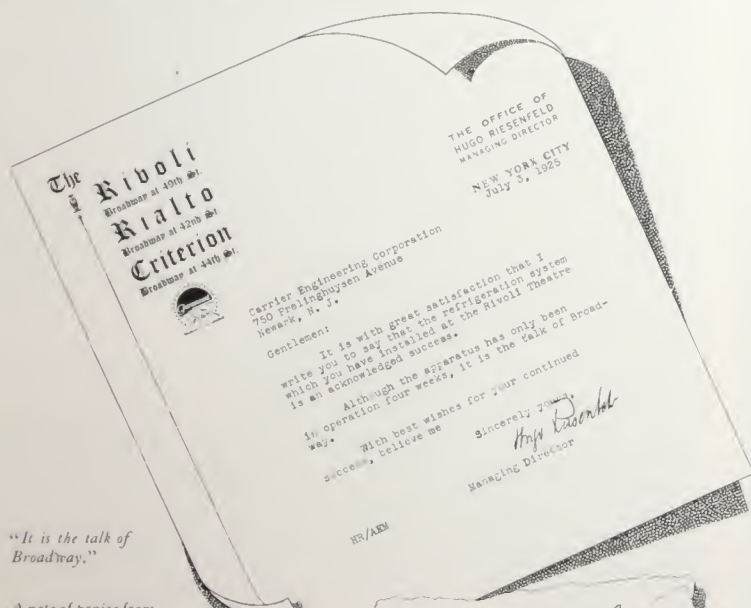 The Rivoli
Broadway at 49th St.
Rialto
Broadway at 42nd St.
Criterion
Broadway at 44th St.
THE OFFICE OF
HUGO RIESENFELD
MANAGING DIRECTOR
NEW YORK CITY
July 3, 1925
Carrier Engineering Corporation
750 Frelinghuysen Avenue
Newark, N. J.
Gentlemen:
It is with great satisfaction that I
write you to say that the refrigeration system
which you have installed at the Rivoli Theatre
is an acknowledged success.
Although the apparatus has only been
in operation four weeks, it is the talk of Broad-
way.
With best wishes for your continued
success, believe me
Sincerely yours,
Hugo Riesenfeld
Managing Director
HR/AEM
"It is the talk of
Broadway."